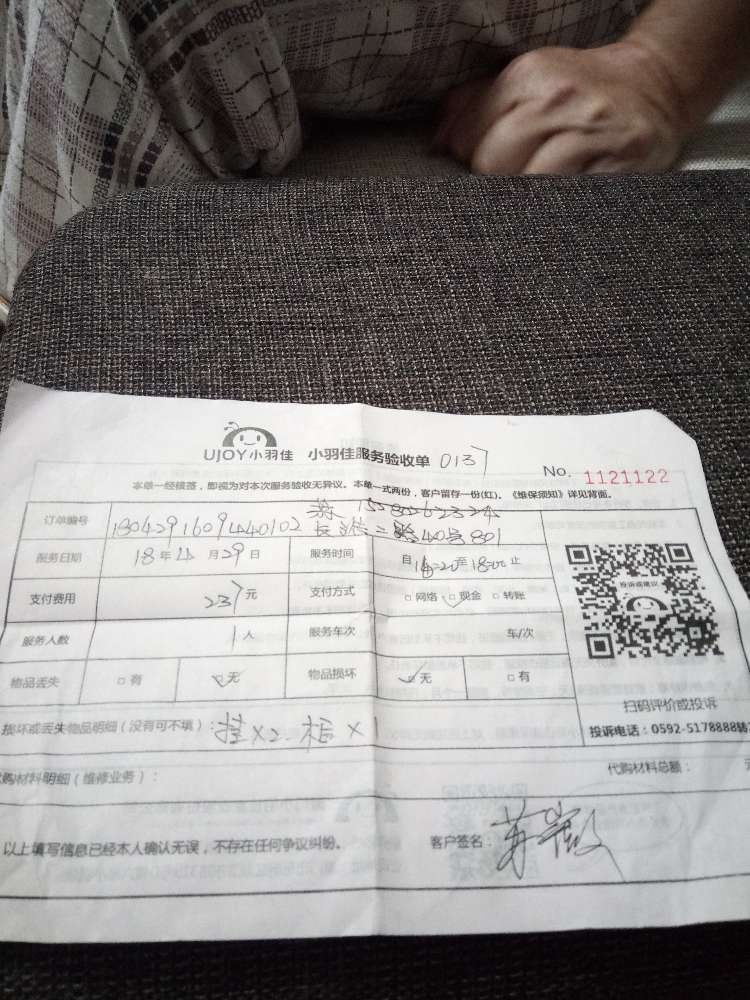 UJOY小羽佳 小羽佳服务验收单 0137
No. 1121122
本单一经核签，即视为对本次服务验收无异议。本单一式两份，客户留存一份(红)。《维保须知》详见背面。
订单编号 1804291609440102
服务日期 18年4月29日 服务时间 自14:20至18:00止
支付费用 237元 支付方式 □网络 □现金 □转账
服务人数 1人 服务车次 车/次
物品丢失 □有 □无 物品损坏 □无 □有
投诉或建议
扫码评价或投诉
投诉电话：0592-5178888转
损坏或丢失物品明细（没有可不填）：挂X2 柜X1
代购材料明细（维修业务）： 代购材料总额：
以上填写信息已经本人确认无误，不存在任何争议纠纷。 客户签名：